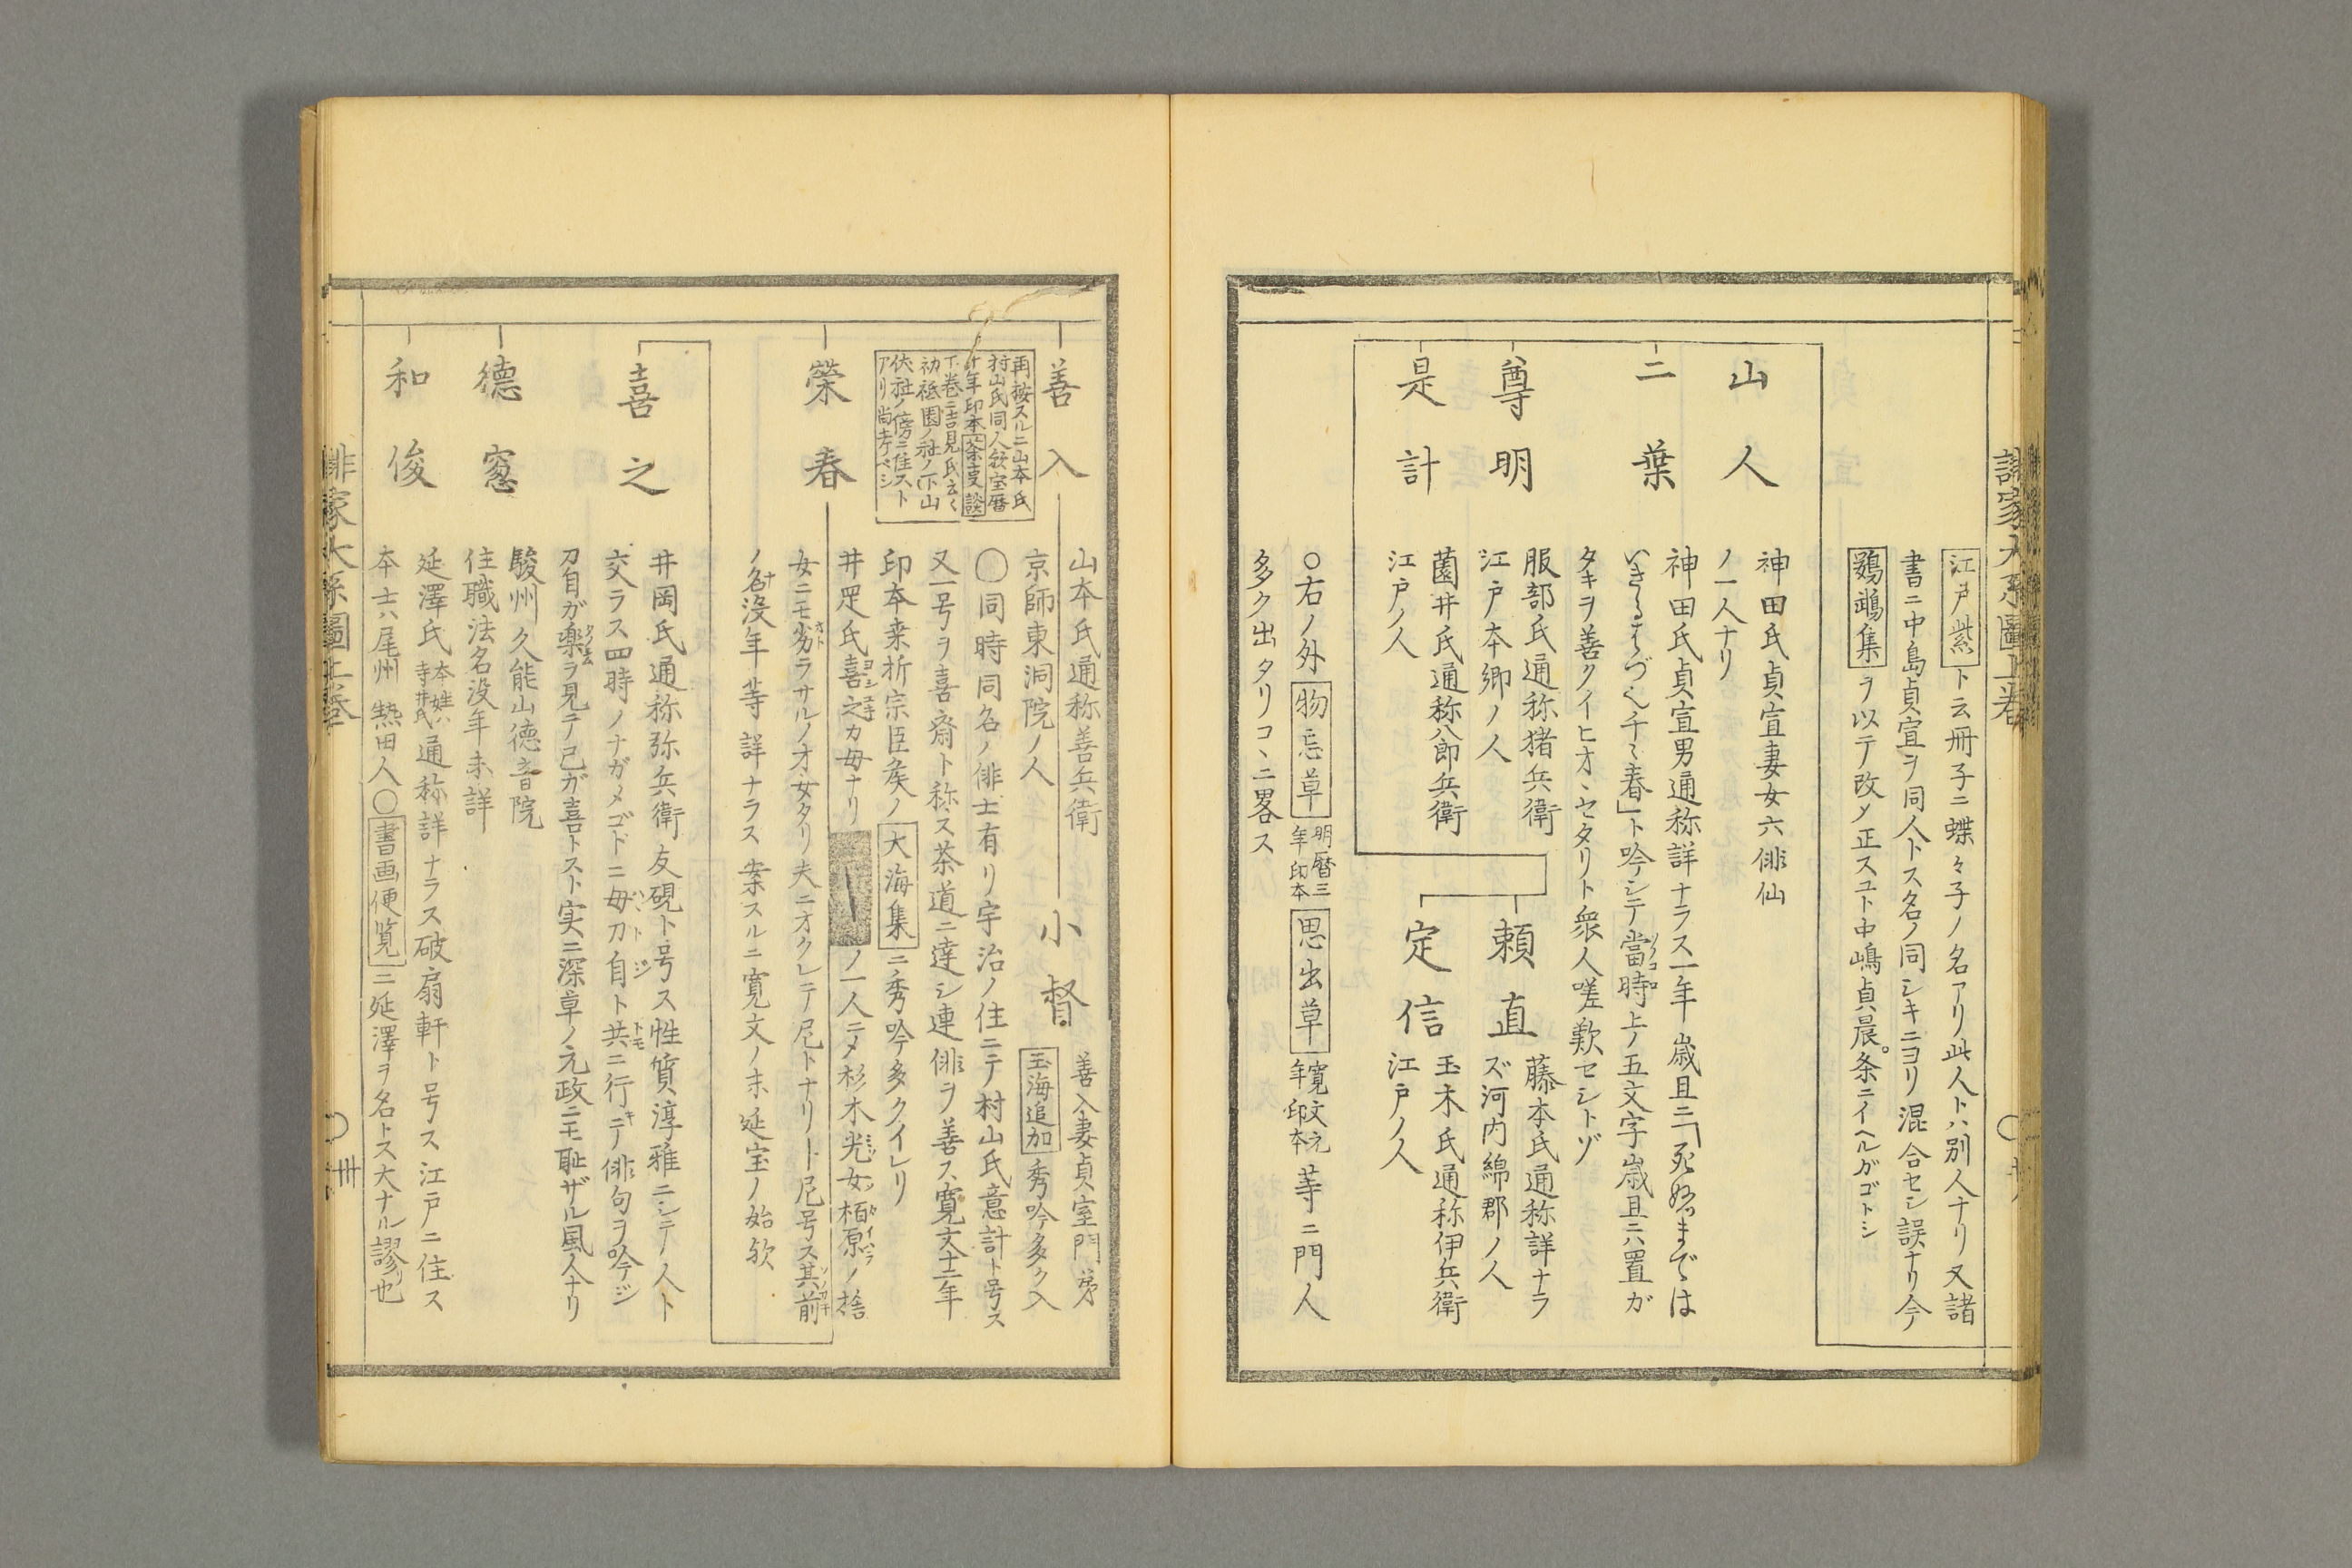 江戸紫ト云冊子ニ蝶々子ノ名アリ此人トハ別人ナリ又諸
書ニ中島貞宣ヲ同人トス名ノ同シキニヨリ混合セシ誤ナリ今
鸚鵡集ヲ以テ改メ正スヿ中嶋貞晨条ニイヘルガゴトシ
山人
神田氏貞宣妻女六俳仙
ノ一人ナリ
二葉
神田氏貞宣男通称詳ナラス一年歳旦ニ「死ぬまでは
いきるはづ也千々春」ト吟シテ當時上ノ五文字歳旦ニハ置ガ
タキヲ善クイヒオヽセタリト衆人嗟歎セシトゾ
尊明
服部氏通称猪兵衛
江戸本郷ノ人
是計
薗井氏通称八郎兵衛
江戸ノ人
頼直
藤本氏通称詳ナラ
ズ河内綿郡ノ人
定信
玉木氏通称伊兵衛
江戸ノ人
○右ノ外物忘草明暦三年印本思出草寛文元年印本等ニ門人
多ク出タリコヽニ畧ス
善入
山本氏通称善兵衛
京師東洞院ノ人
小督
善入妻貞室門弟
玉海追加秀吟多ク入
再按スルニ山本氏
村山氏同人欤宝暦
十年印本茶事談
下巻ニ喜見氏云々
初祗園ノ社ノ下山
伏社ノ傍ニ住スト
アリ尚考ベシ
○同時同名ノ俳士有リ宇治ノ住ニテ村山氏意計ト号ス
又一号ヲ喜斎ト称ス茶道ニ達シ連俳ヲ善ス寛文十二年
印本桒折宗臣矦ノ大海集ニ秀吟多クイレリ
榮春
井疋氏喜之カ母ナリ
ノ一人ニメ杉木光女栢原ノ捨
女ニモ劣ラサルノ才女タリ夫ニオクレテ尼トナリト尼号ス其前
ノ名没年等詳ナラス案スルニ寛文ノ末延宝ノ始欤
喜之
井岡氏通称弥兵衛友硯ト号ス性質淳雅ニシテノ人ト
交ラス四時ノナガメゴトニ母刀自ト共ニ行テ俳句ヲ吟ジ
刀自ガ楽ヲ見テ己ガ喜トスト実ニ深草ノ元政ニモ耻ザル風人ナリ
德窓
駿州久能山徳音院
住職法名没年未詳
和俊
延澤氏本姓ハ寺井氏通称詳ナラス破扇軒ト号ス江戸ニ住ス
本士ハ尾州熱田人○書画便覧ニ延澤ヲ名トス大ナル謬リ也
俳家大系圖上巻